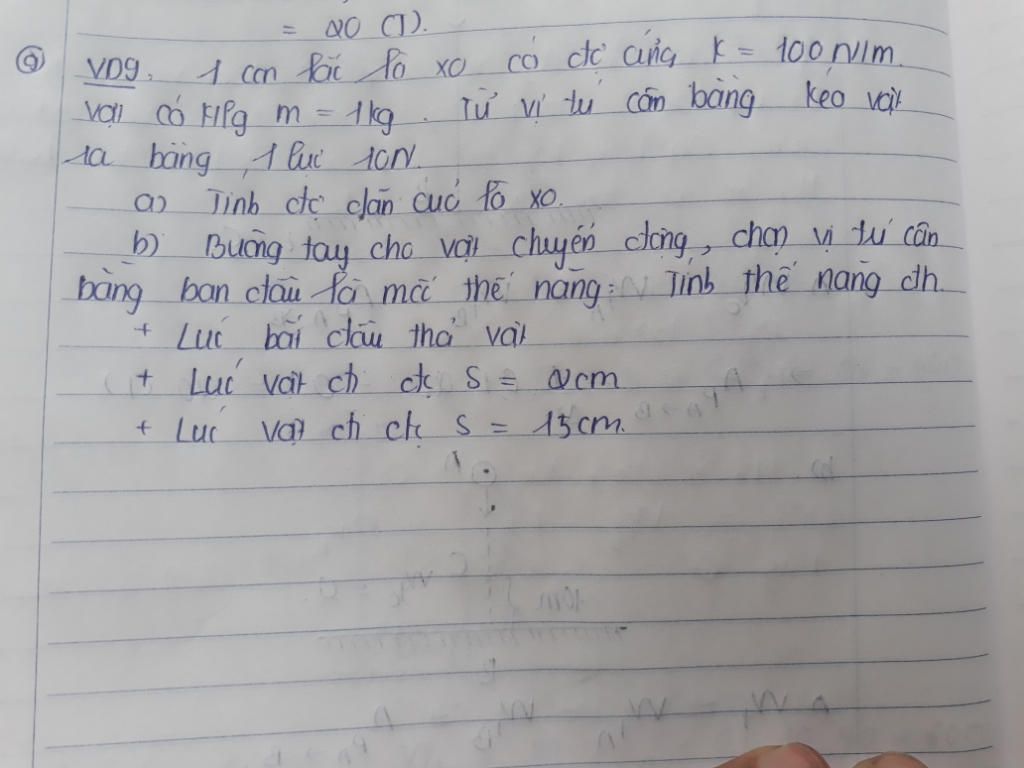 = 20 (J).
9 VD9. 1 con lắc lò xo có độ cứng K = 100N/m.
vật có klg m = 1kg. Từ vị trí cân bằng kéo vật
ra bằng 1 lực 10N.
a) Tính độ dãn của lò xo.
b) Buông tay cho vật chuyển động, chọn vị trí cân
bằng ban đầu là mốc thế năng: Tính thế năng đh
+ Lúc bắt đầu thả vật
+ Lúc vật đi đc S = 2cm
+ Lúc vật đi đc S = 15cm.